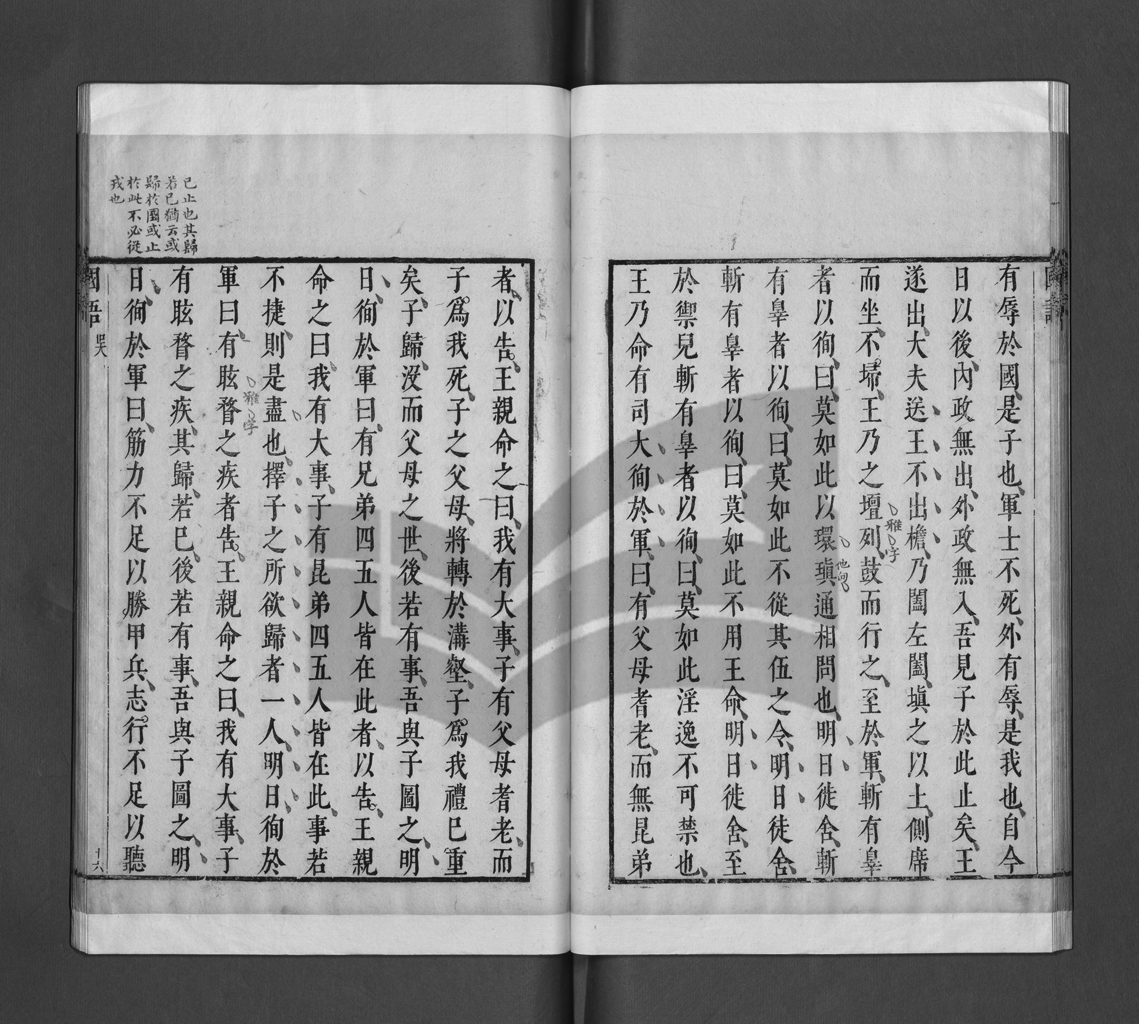 有辱於國是子也軍士不死外有辱是我也自今
日以後內政無出外政無入吾見子於此止矣王
遂出大夫送王不出檐乃闔左闔塡之以土側席
而坐不埽王乃之壇列鼓而行之至於軍斬有辠
者以徇曰莫如此以環瑱通相問也明日徙舍斬
有辠者以徇曰莫如此不從其伍之令明日徙舍
斬有辠者以徇曰莫如此不用王命明日徙舍至
於禦兒斬有辠者以徇曰莫如此淫逸不可禁也
王乃命有司大徇於軍曰有父母耆老而無昆弟
雅字
也句
者以告王親命之曰我有大事子有父母耆老而
子爲我死子之父母將轉於溝壑子爲我禮已重
矣子歸沒而父母之世後若有事吾與子圖之明
日徇於軍曰有兄弟四五人皆在此者以告王親
命之曰我有大事子有昆弟四五人皆在此事若
不捷則是盡也擇子之所欲歸者一人明日徇於
軍曰有眩瞀之疾者告王親命之曰我有大事子
有眩瞀之疾其歸若已後若有事吾與子圖之明
日徇於軍曰筋力不足以勝甲兵志行不足以聽
雅字
已止也其歸
若已猶云或
歸於國或止
於此不必從
戎也
國語
十六